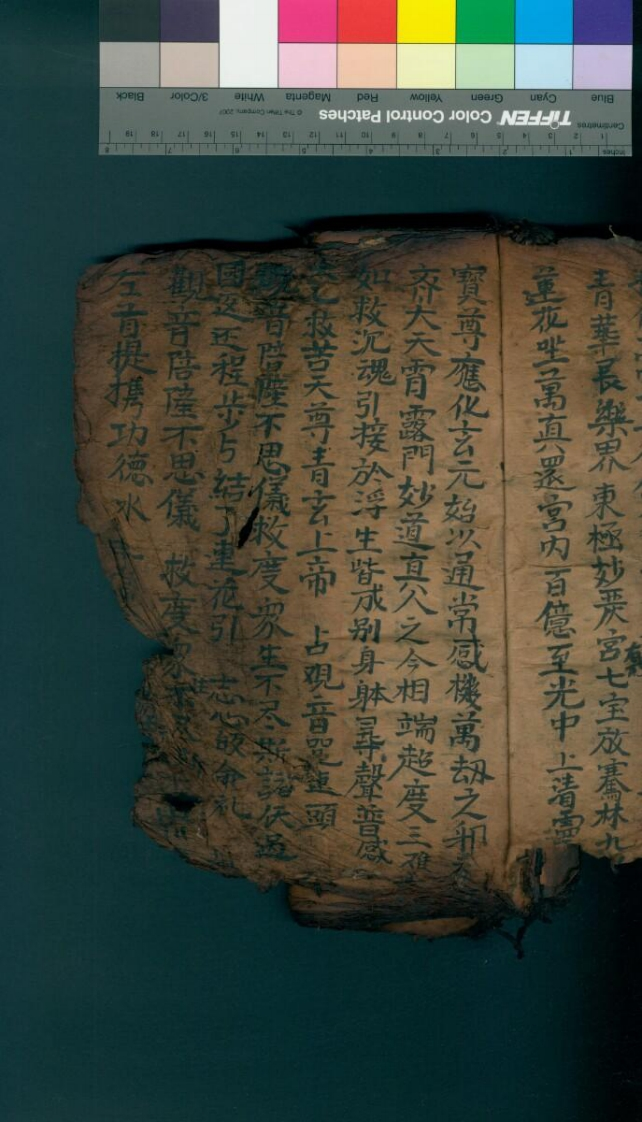 Blue Cyan Green Yellow Red Magenta White 3/Color Black
TIFFEN Color Control Patches © The Tiffen Company, 2007
Centimetres 1 2 3 4 5 6 7 8 9 10 11 12 13 14 15 16 17 18 19
Inches 1 2 3 4 5 6 7 8
青華長樂界 東極妙嚴宮七宝放騫林九
蓮花坐萬真還宮內百億至光中 上清靈
寶尊應化玄元始以通常感機萬劫之那
齐大天霄露門妙道直公之今相端超度三
如救沉魂引接於浮生皆成别身躰尋聲普感
太乙救苦天尊青玄上帝 占观音 蓮頭
觀音陪隡不思儀救度眾生不尽 諸伏
國返还程步与結了連花引 志心皈命礼
觀音陪隡不思儀 救度眾
左言提携功德水